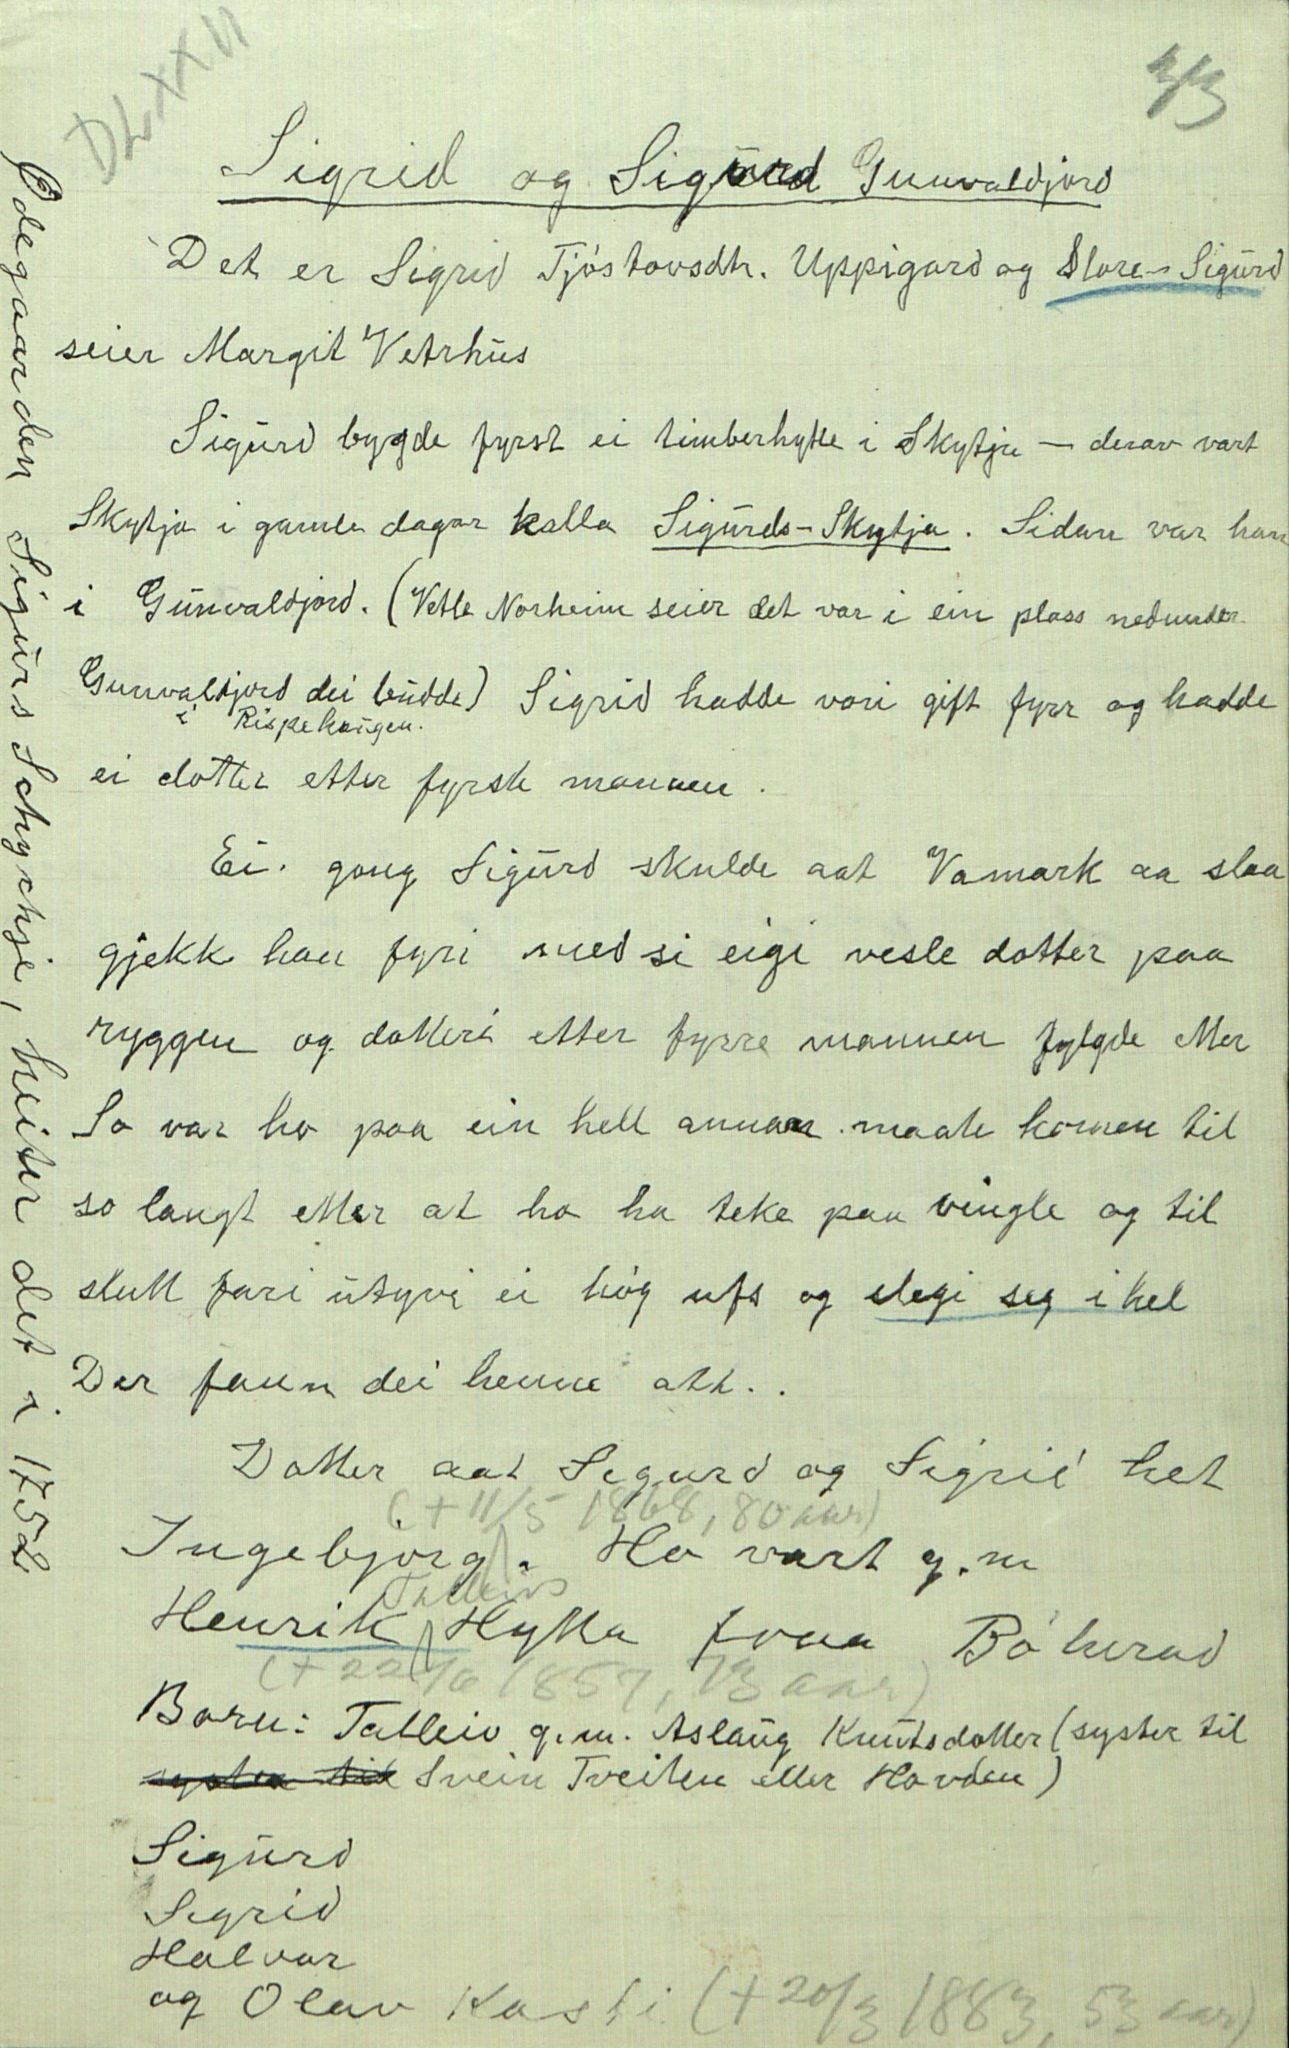 DLXXII
3/3
Sigrid og Sigurd Gunvaldjord
Det er Sigrid Tjóstovsdtr. Uppigard og Store-Sigūrd
seier Margit Vetrhūs
Sigūrd bygde fyrst ei timberhytte i Skytju — derav vart
Skytja i gamle dagar kalla Sigūrds-Skytja. Sidan var han
i Gūnvaldjord. (Vetle Norheim seier det var i ein plass nedunder
Gunvaldjord dei būdde) Sigrid hadde vori gift fyrr og hadde
i Rispehaugen.
ei dotter etter fyrste mannen.
Ei. gong Sigūrd skulde aat Vamark aa slaa
gjekk han fyri med si eigi vesle dotter paa
ryggen og dotteri etter fyrre mannen fylgde etter
So var ho paa ein hell annan maate komen til
so langt etter at ho ha teke paa vingle og til
slutt fari ūtyvi ei hóg ufs og slegi seg i hel
Der fann dei henne att..
Dotter aat Segurd og Sigrid het
(+ 11/5 1868, 80 aar)
Ingebjórg. Ho vart g.m
Talleivs
Henrik Hytta fraa Bóherad
(+ 22/6 1857, 73 aar)
Born: Talleiv g.m. Aslaūg Knūtsdotter (syster til
syster til Svein Tveiten eller Hovden)
Sigūrd
Segrid
Halvor
og Olav Kasti (+ 20/3 1883, 53 aar)
Ødegaarden Sigūrs Schychje, heiter det i 1752